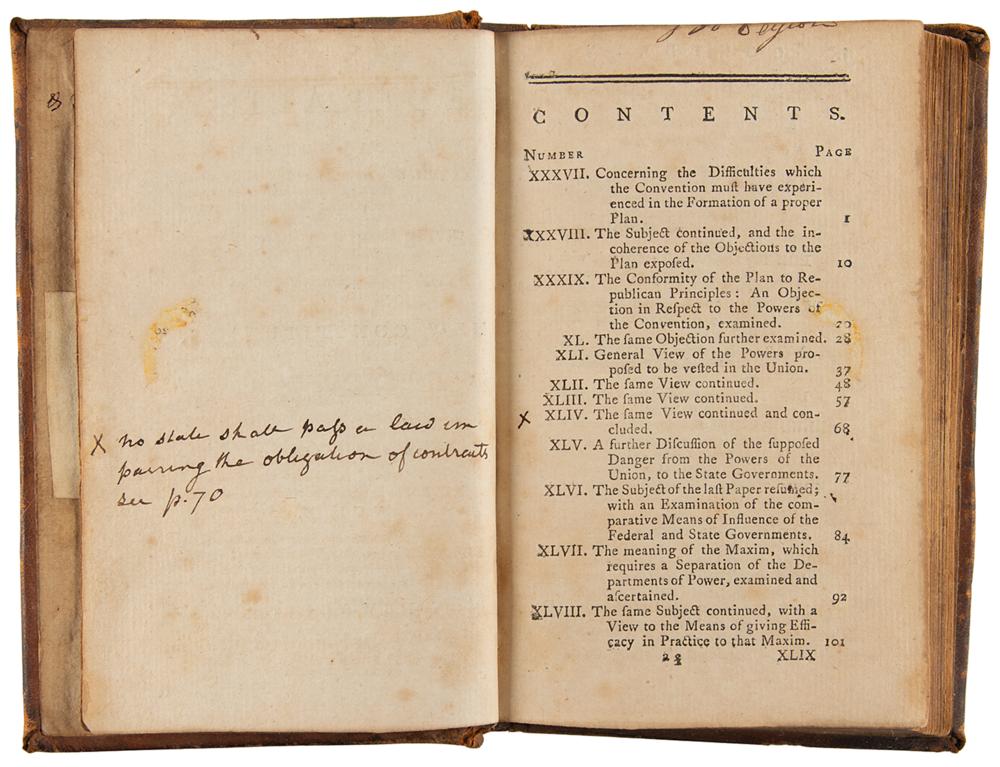 X no state shall paſs a law im
pairing the obligation of contracts
see p. 70
CONTENTS.
NUMBER PAGE
XXXVII. Concerning the Difficulties which
the Convention muſt have experi-
enced in the Formation of a proper
Plan. 1
XXXVIII. The Subject continued, and the in-
coherence of the Objections to the
Plan expoſed. 10
XXXIX. The Conformity of the Plan to Re-
publican Principles: An Objec-
tion in Reſpect to the Powers of
the Convention, examined. 20
XL. The ſame Objection further examined. 28
XLI. General View of the Powers pro-
poſed to be veſted in the Union. 37
XLII. The ſame View continued. 48
XLIII. The ſame View continued. 57
X XLIV. The ſame View continued and con-
cluded. 68
XLV. A further Diſcuſſion of the ſuppoſed
Danger from the Powers of the
Union, to the State Governments. 77
XLVI. The Subject of the laſt Paper reſumed;
with an Examination of the com-
parative Means of Influence of the
Federal and State Governments. 84
XLVII. The meaning of the Maxim, which
requires a Separation of the De-
partments of Power, examined and
aſcertained. 92
XLVIII. The ſame Subject continued, with a
View to the Means of giving Effi-
cacy in Practice to that Maxim. 101
XLIX